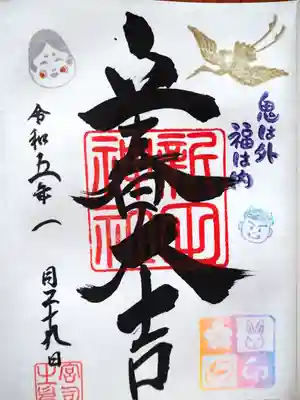 鬼は外
福は内
立春大吉
新山神社
令和五年一月二十九日